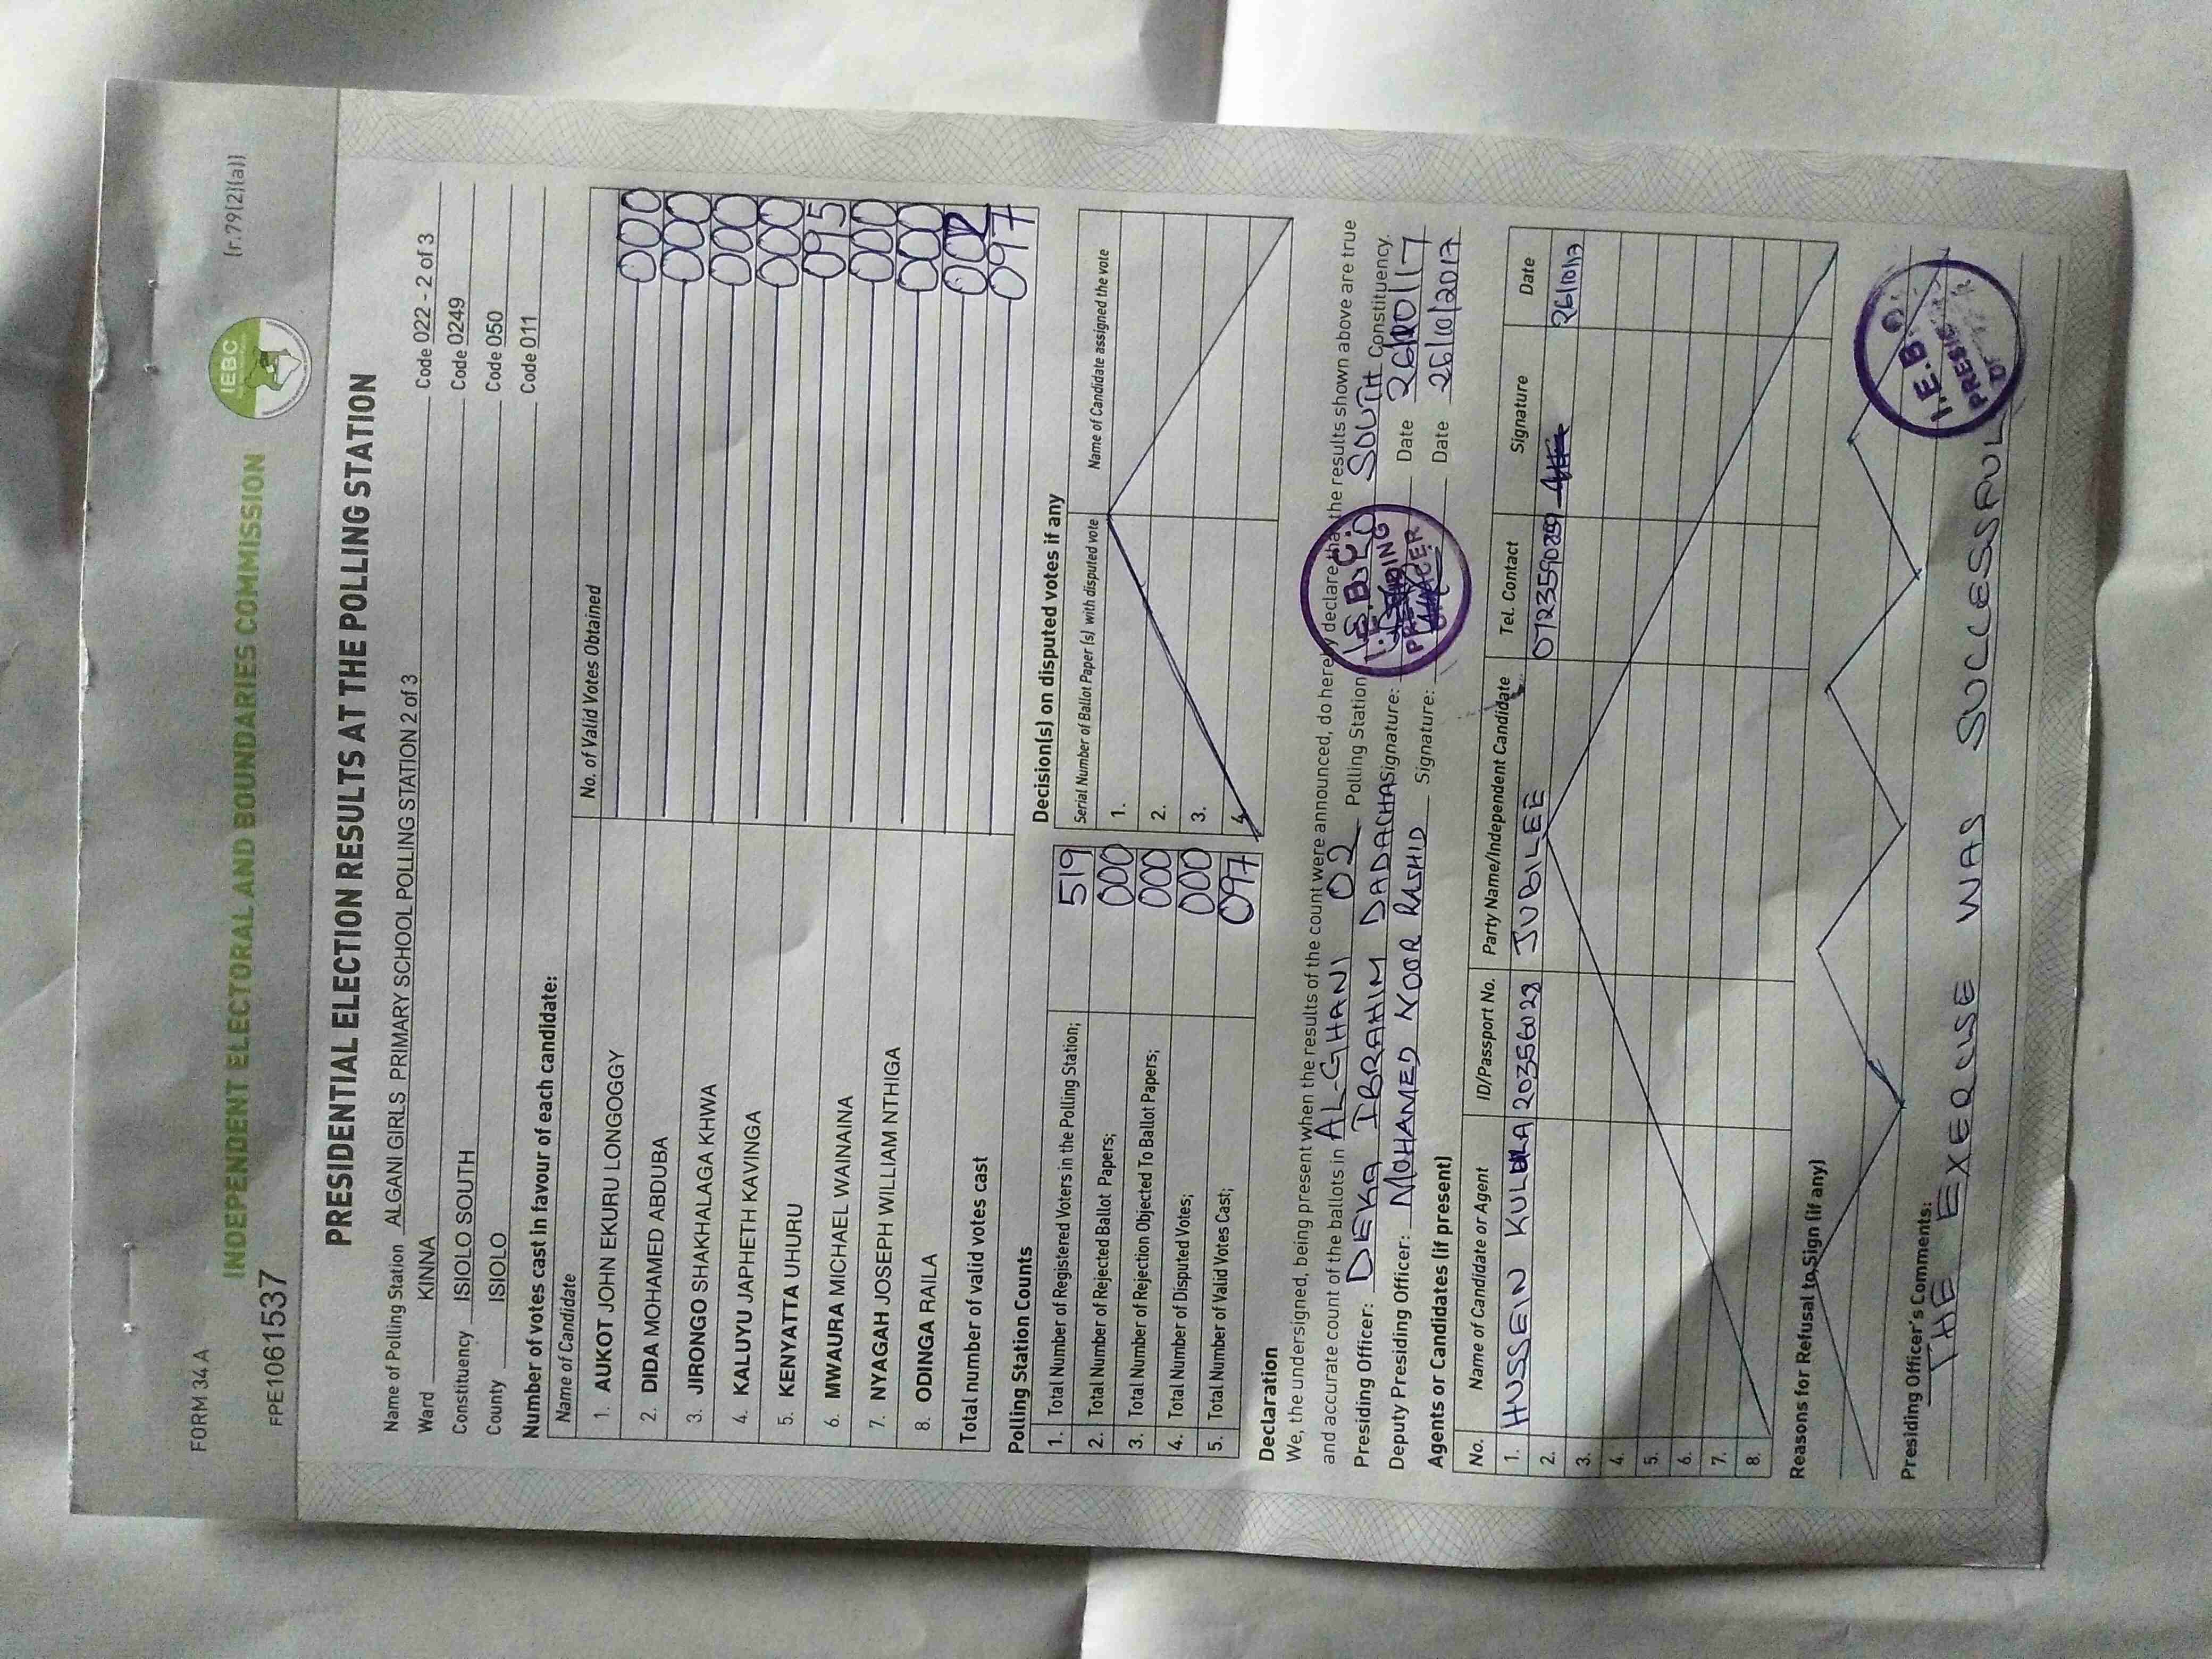 FORM 34 A
(r.79(2)(a))
INDEPENDENT ELECTORAL AND BOUNDARIES COMMISSION
IEBC
FPE1061537
PRESIDENTIAL ELECTION RESULTS AT THE POLLING STATION
Name of Polling Station ALGANI GIRLS PRIMARY SCHOOL POLLING STATION 2 of 3 Code 022 - 2 of 3
Ward KINNA Code 0249
Constituency ISIOLO SOUTH Code 050
County ISIOLO Code 011
Number of votes cast in favour of each candidate:
Name of Candidate No. of Valid Votes Obtained
1. AUKOT JOHN EKURU LONGOGGY 000
2. DIDA MOHAMED ABDUBA 000
3. JIRONGO SHAKHALAGA KHWA 000
4. KALUYU JAPHETH KAVINGA 000
5. KENYATTA UHURU 095
6. MWAURA MICHAEL WAINAINA 000
7. NYAGAH JOSEPH WILLIAM NTHIGA 000
8. ODINGA RAILA 002
Total number of valid votes cast 097
Polling Station Counts
1. Total Number of Registered Voters in the Polling Station; 519
2. Total Number of Rejected Ballot Papers; 000
3. Total Number of Rejection Objected To Ballot Papers; 000
4. Total Number of Disputed Votes; 000
5. Total Number of Valid Votes Cast; 097
Decision(s) on disputed votes if any
Serial Number of Ballot Paper (s) with disputed vote Name of Candidate assigned the vote
1.
2.
3.
4.
Declaration
We, the undersigned, being present when the results of the count were announced, do hereby declare that the results shown above are true
and accurate count of the ballots in AL-GHANI 02 Polling Station ISIOLO SOUTH Constituency.
Presiding Officer: DEKA IBRAHIM DADACHA Signature: Date 26/10/17
Deputy Presiding Officer: MOHAMED NOOR RASHID Signature: Date 26/10/2017
I.E.B.C.
PRESIDING
OFFICER
Agents or Candidates (if present)
No. Name of Candidate or Agent ID/Passport No. Party Name/Independent Candidate Tel. Contact Signature Date
1. HUSSEIN KULULA 20356028 JUBILEE 0723590289 26/10/17
2.
3.
4.
5.
6.
7.
8.
Reasons for Refusal to Sign (if any)
Presiding Officer's Comments:
THE EXERCISE WAS SUCCESSFUL
I.E.B.C.